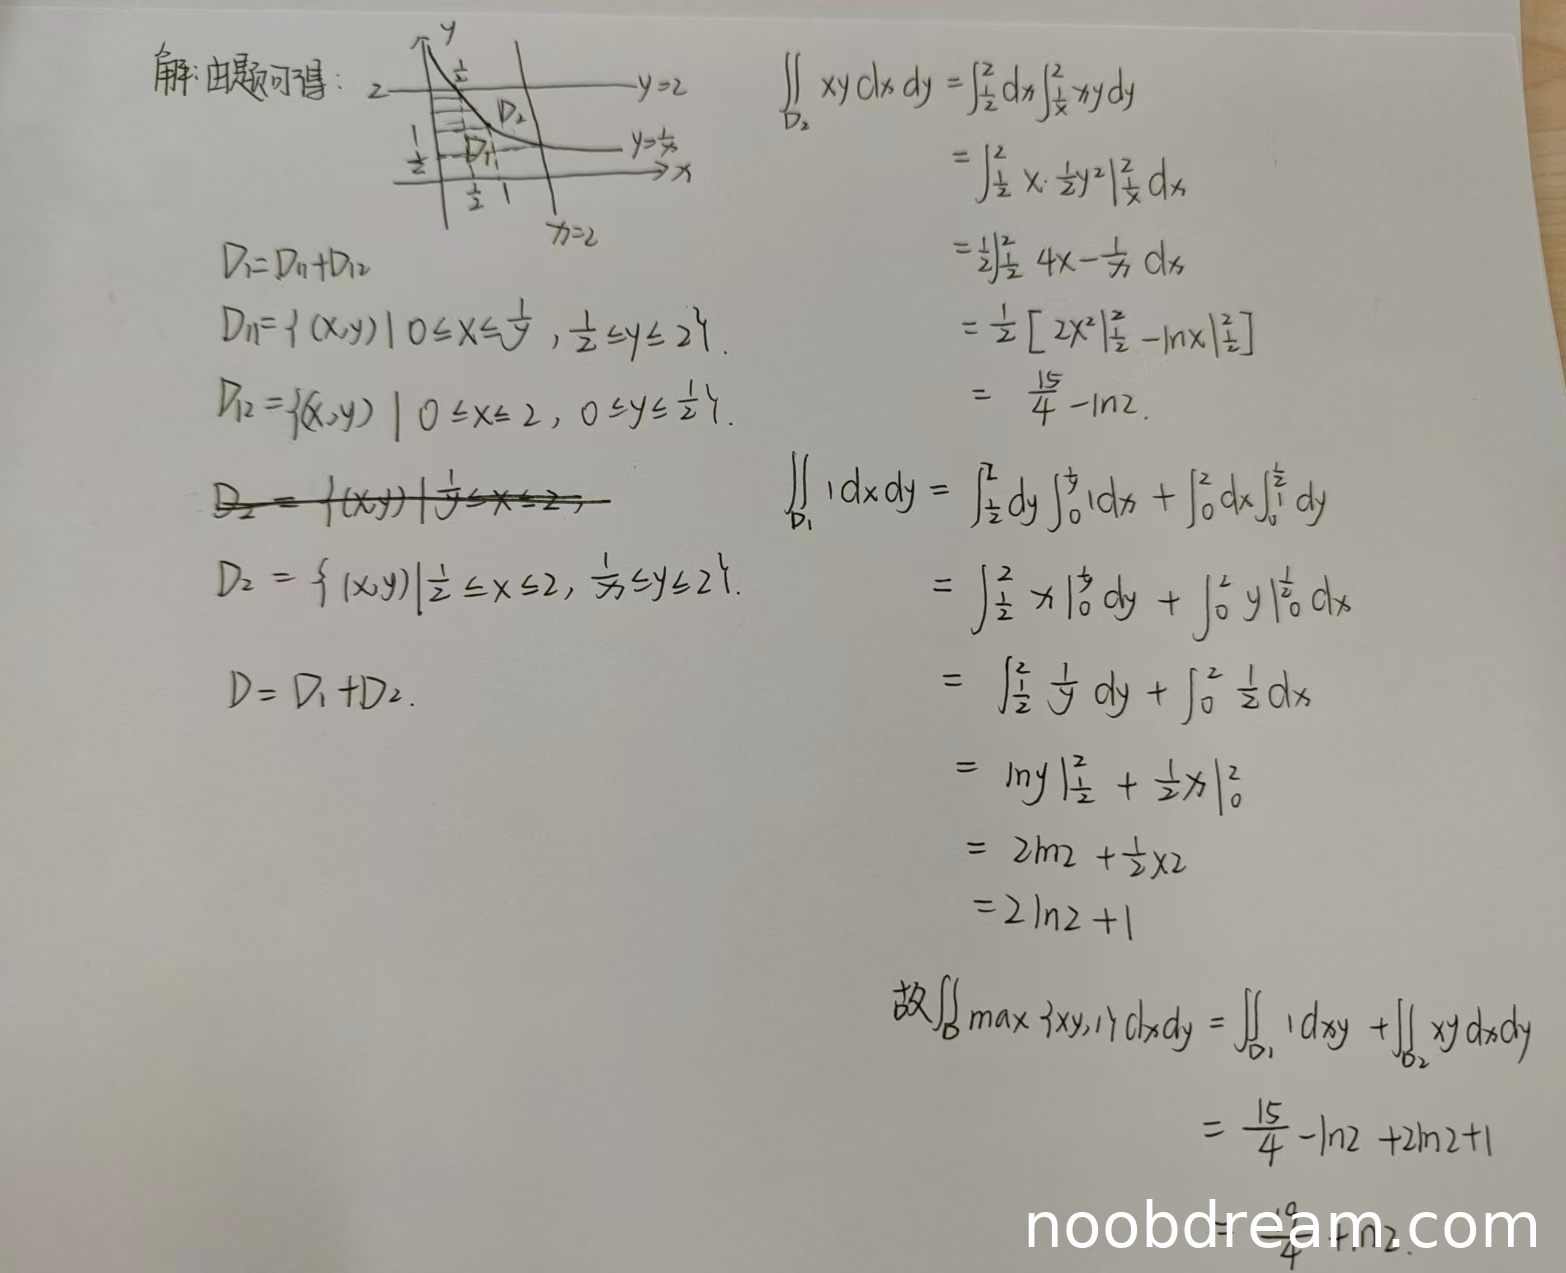 解:由题可得:
y
2
1/2
y=2
D₂
1
1/2
D₁
y=1/x
x
1/2
1
x=2
D₁=D₁₁+D₁₂
D₁₁={(x,y)|0≤x≤1/y,1/2≤y≤2}.
D₁₂={(x,y)|0≤x≤2,0≤y≤1/2}.
D₂={(x,y)|1/y≤x≤2,
D₂={(x,y)|1/2≤x≤2,1/x≤y≤2}.
D=D₁+D₂.
∬_D₂ xydxdy=∫_{1/2}^2 dx∫_{1/x}^2 xydy
=∫_{1/2}^2 x·1/2y²|_{1/x}^2 dx
=1/2∫_{1/2}^2 4x-1/x dx
=1/2[2x²|_{1/2}^2-lnx|_{1/2}^2]
=15/4-ln2.
∬_D₁ 1dxdy=∫_{1/2}^2 dy∫_0^{1/y} 1dx+∫_0^2 dx∫_0^{1/2} 1dy
=∫_{1/2}^2 x|_0^{1/y} dy+∫_0^2 y|_0^{1/2} dx
=∫_{1/2}^2 1/y dy+∫_0^2 1/2 dx
=lny|_{1/2}^2+1/2x|_0^2
=2ln2+1/2×2
=2ln2+1
故∬_D max{xy,1}dxdy=∬_D₁ 1dxy+∬_D₂ xydxdy
=15/4-ln2+2ln2+1
=19/4+ln2.
noobdream.com